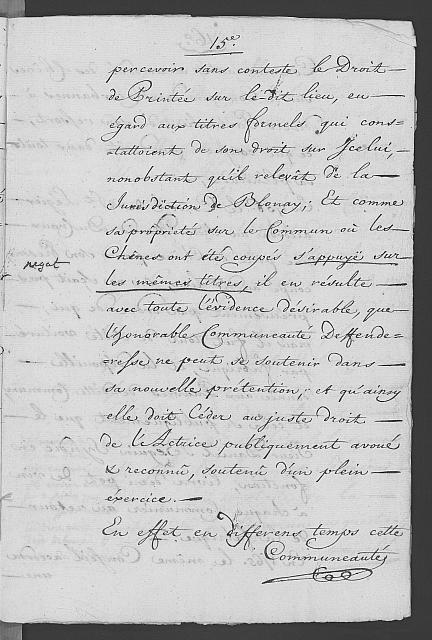 15e.
percevoir sans conteste le Droit
de Printée sur le-dit lieu, eu
égard aux titres formels qui cons-
-tattoient de son droit sur Jcelui,
nonobstant qu'il relevât de la
Jurisdiction de Blonay; Et comme
sa propriété sur le Commun où les
Chênes ont été coupés s'appuÿe sur
negat
les mêmes titres, il en résulte
avec toute l'évidence désirable, que
l'honorable Communeauté Deffende-
-resse ne peut se soutenir dans
sa nouvelle prétention; et qu'ainsy
elle doit Céder au juste droit
de l'Actrice publiquement avoué
& reconnû, soutenû d'un plein
exercice.
En effet en differens temps cette
Communeauté